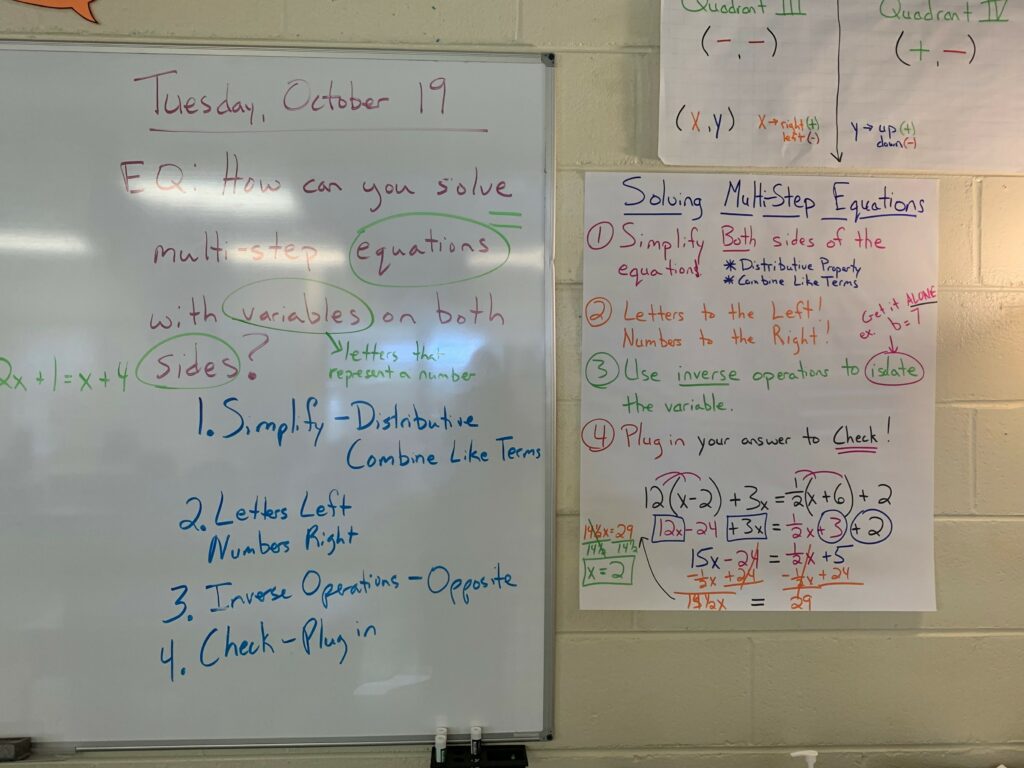 Tuesday, October 19
EQ: How can you solve
multi-step equations
with variables on both
sides?
letters that
represent a number
2x + 1 = x + 4
1. Simplify - Distributive
Combine Like Terms
2. Letters Left
Numbers Right
3. Inverse Operations - Opposite
4. Check - Plug in
Quadrant III
(-, -)
Quadrant IV
(+, -)
(x, y)
x → right (+)
left (-)
y → up (+)
down (-)
Solving Multi-Step Equations
① Simplify Both sides of the
equation!
* Distributive Property
* Combine Like Terms
② Letters to the Left!
Numbers to the Right!
Get it ALONE
ex. b = 7
③ Use inverse operations to isolate
the variable.
④ Plug in your answer to Check!
12(x-2) + 3x = 1/2(x+6) + 2
12x - 24 + 3x = 1/2x + 3 + 2
15x - 24 = 1/2x + 5
-1/2x + 24 -1/2x + 24
14 1/2x = 29
14 1/2x = 29
14 1/2 14 1/2
x = 2